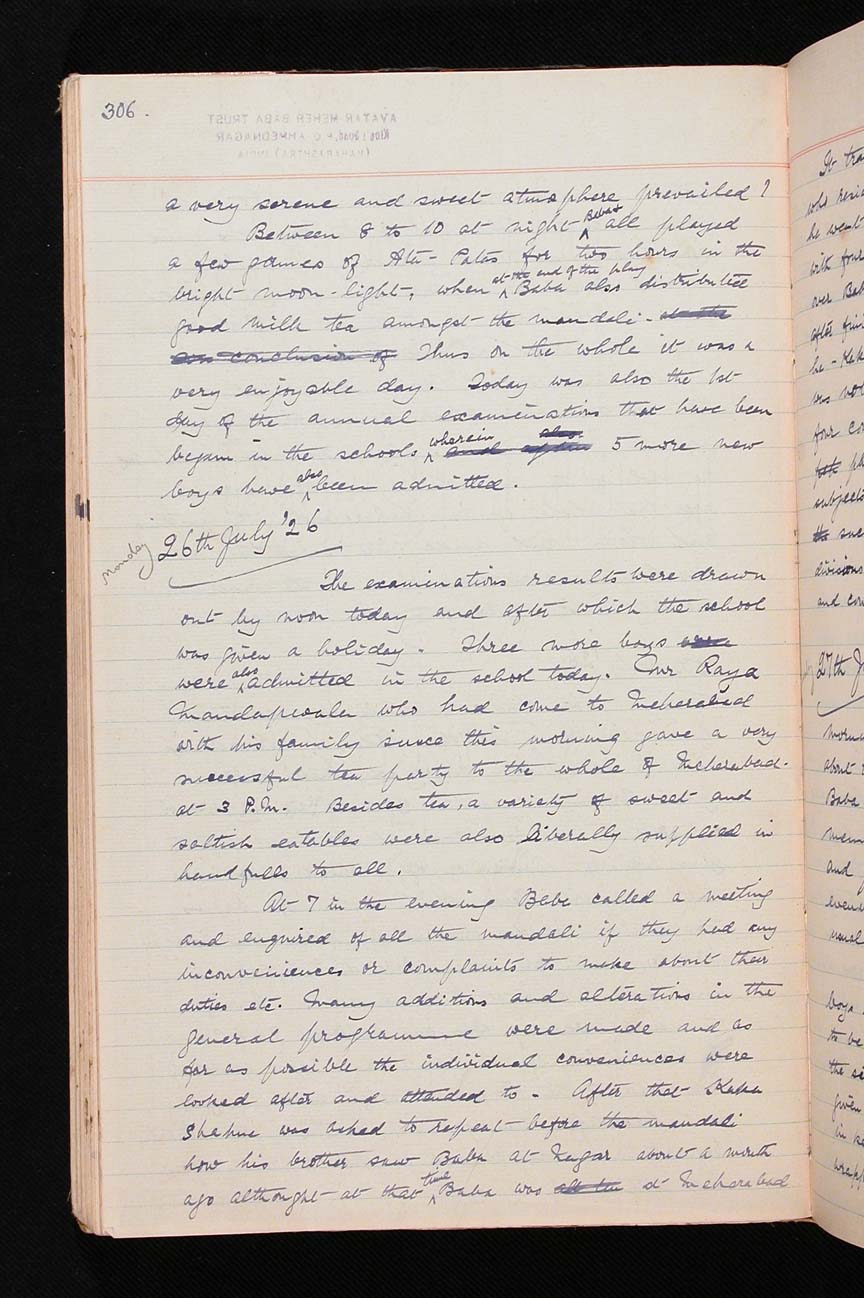 306.
AVATAR MEHER BABA TRUST
King's Road, P.O. AHMEDNAGAR
(MAHARASHTRA) INDIA
a very serene and sweet atmosphere prevailed?
Between 8 to 10 at night all played
a few games of Ati-Patis for two hours in the
bright moon-light, when at the end of the play Baba also distributed
good milk tea amongst the mandali. at the
conclusion of Thus on the whole it was a
very enjoyable day. Today was also the 1st
day of the annual examinations that have been
began in the schools wherein also 5 more new
boys have also been admitted.
Monday 26th July '26
The examinations results were drawn
out by noon today and after which the school
was given a holiday. Three more boys
were also admitted in the school today. Our Raya
Mandapwala who had come to Meherabad
with his family since this morning gave a very
successful tea party to the whole of Meherabad.
at 3 P.M. Besides tea, a variety of sweet and
saltish eatables were also liberally supplied in
handfulls to all.
At 7 in the evening Baba called a meeting
and enquired of all the mandali if they had any
inconveniences or complaints to make about their
duties etc. Many additions and alterations in the
general programme were made and as
far as possible the individual conveniences were
looked after and attended to. After that Kaka
Shahne was asked to repeat before the mandali
how his brother saw Baba at Nagar about a month
ago althought at that time Baba was at Meherabad
It
who
he went
with four
over
after
he
was not
four
subjects
divisions
and
27th
about
Baba
and
usual
boys
to be
the
given
in